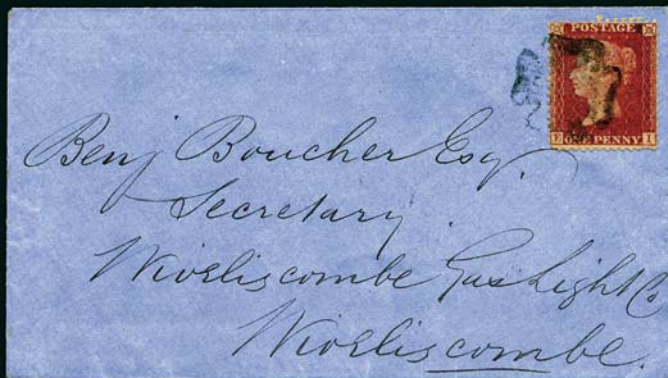 POSTAGE
E ONE PENNY I
Benj Boucher Esq.
Secretary
Wiveliscombe Gas Light Co
Wiveliscombe.